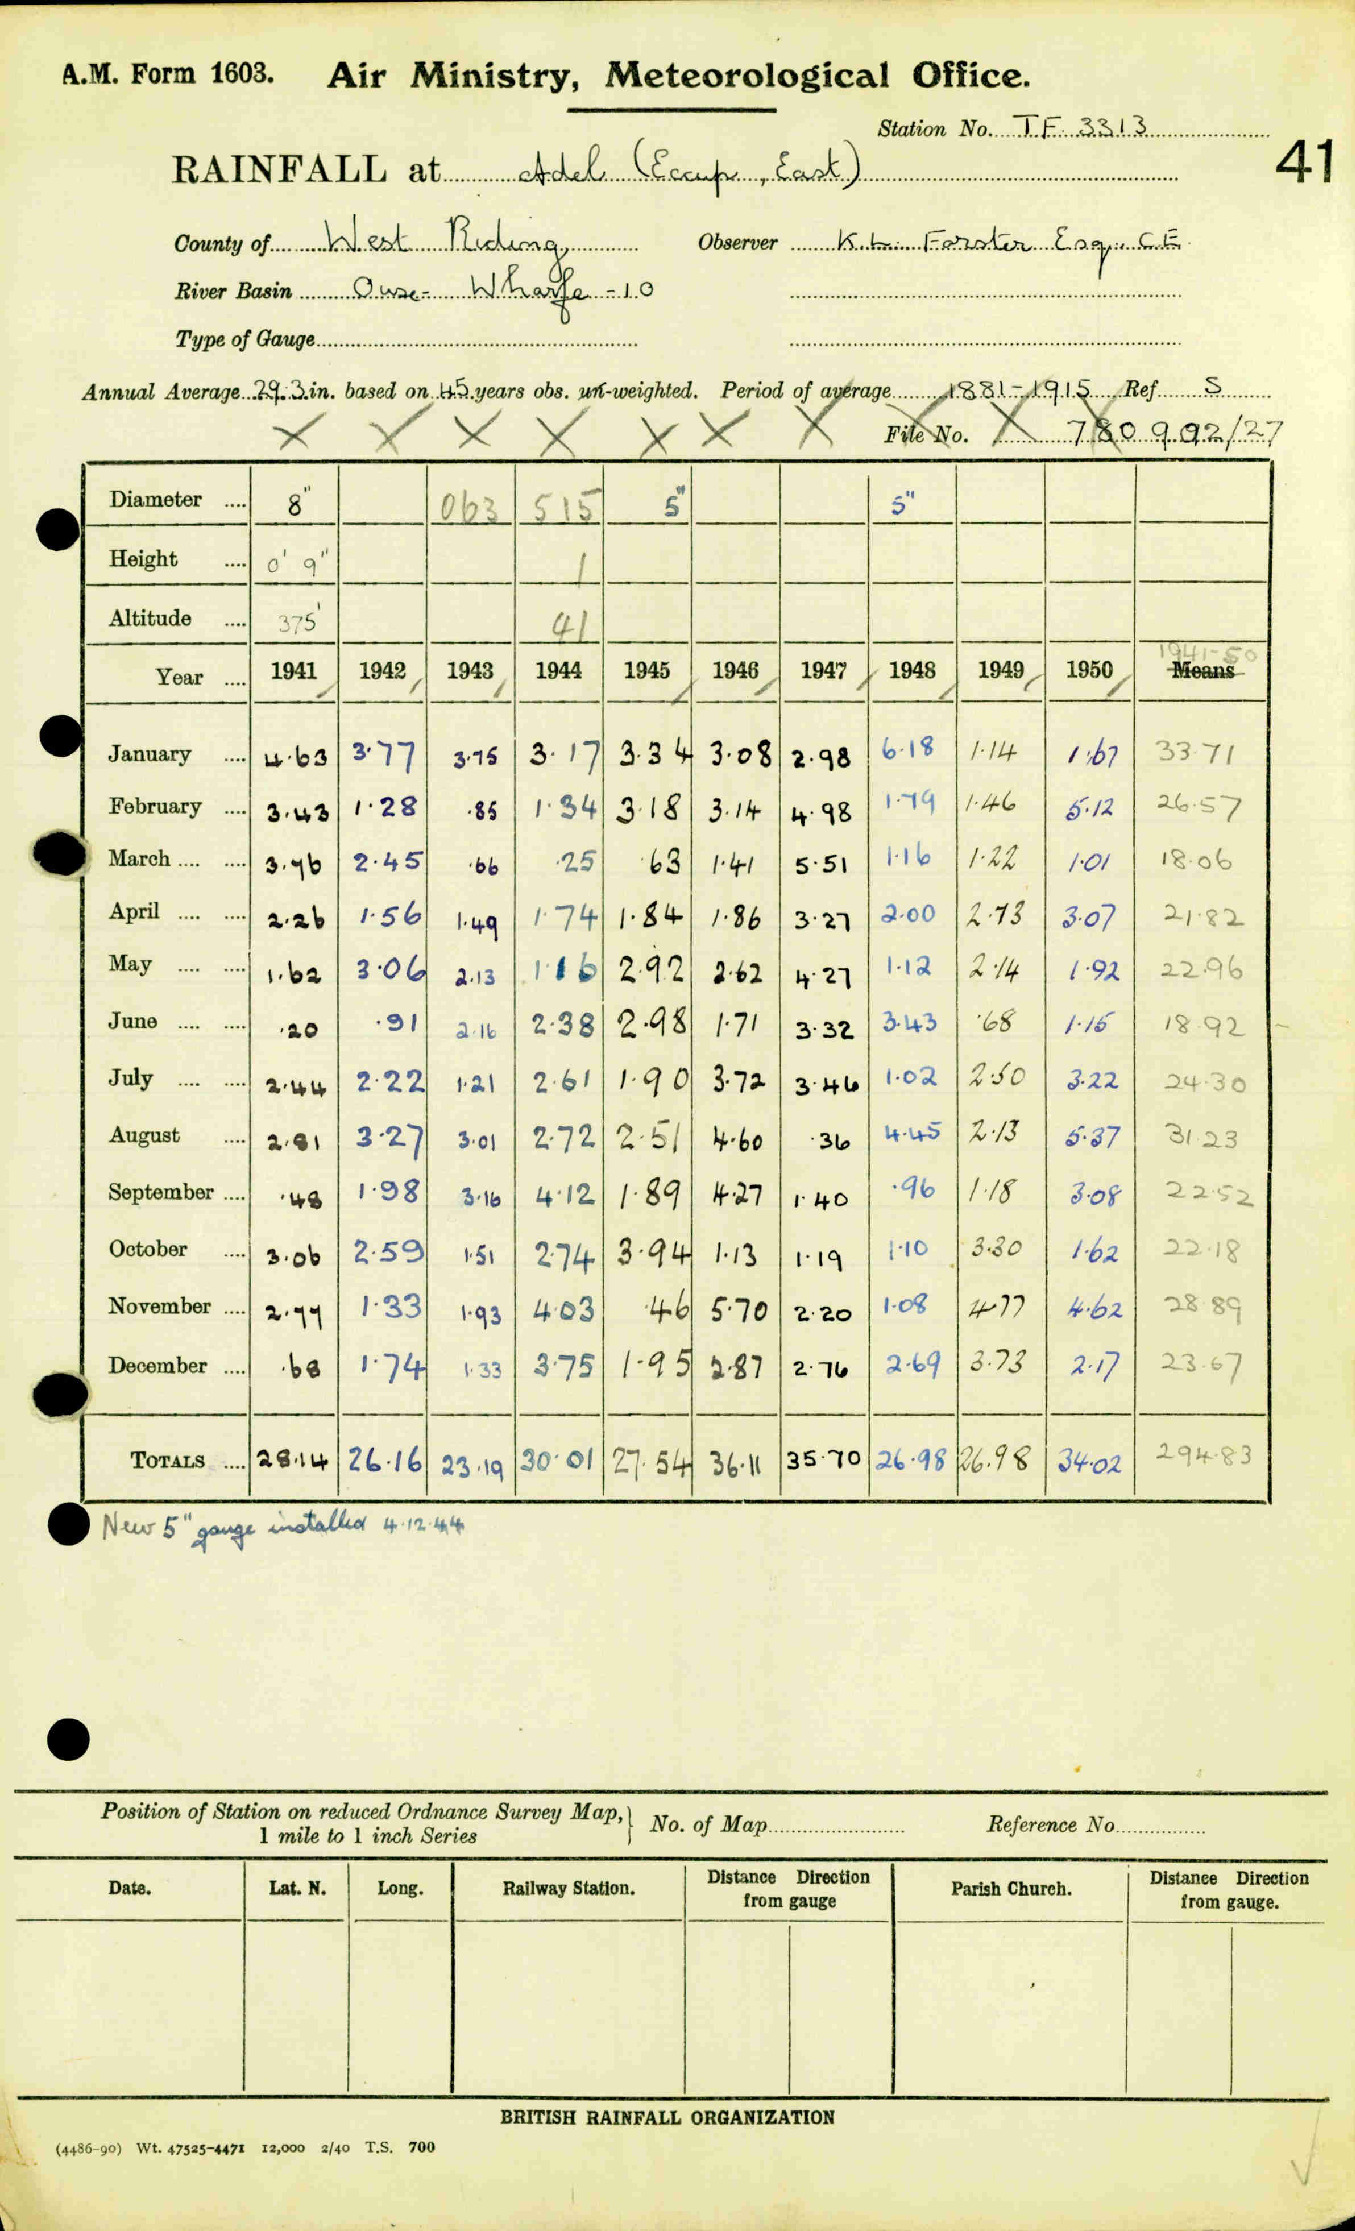 A.M. Form 1603. Air Ministry, Meteorological Office.
Station No. TF 3313
41
RAINFALL at Adel (Eccup, East)
County of West Riding Observer K.L. Forster Esq., C.E.
River Basin Ouse - Wharfe - 10
Type of Gauge
Annual Average 29.3 in. based on 45 years obs. un-weighted. Period of average 1881-1915 Ref S
File No. 780902/27
Diameter .... 8" 063 515 5" 5"
Height .... 0' 9" 1
Altitude .... 375' 41
1941-50
Year .... 1941 1942 1943 1944 1945 1946 1947 1948 1949 1950 Means
January .... 4.63 3.77 3.75 3.17 3.34 3.08 2.98 6.18 1.14 1.67 33.71
February .... 3.43 1.28 .85 1.34 3.18 3.14 4.98 1.79 1.46 5.12 26.57
March .... .... 3.76 2.45 .66 .25 .63 1.41 5.51 1.16 1.22 1.01 18.06
April .... .... 2.26 1.56 1.49 1.74 1.84 1.86 3.27 2.00 2.73 3.07 21.82
May .... .... 1.62 3.06 2.13 1.16 2.92 2.62 4.27 1.12 2.14 1.92 22.96
June .... .... .20 .91 2.16 2.38 2.98 1.71 3.32 3.43 .68 1.15 18.92
July .... .... 2.44 2.22 1.21 2.61 1.90 3.72 3.46 1.02 2.50 3.22 24.30
August .... 2.81 3.27 3.01 2.72 2.51 4.60 .36 4.45 2.13 5.37 31.23
September .... .48 1.98 3.16 4.12 1.89 4.27 1.40 .96 1.18 3.08 22.52
October .... 3.06 2.59 1.51 2.74 3.94 1.13 1.19 1.10 3.30 1.62 22.18
November .... 2.77 1.33 1.93 4.03 .46 5.70 2.20 1.08 4.77 4.62 28.89
December .... .68 1.74 1.33 3.75 1.95 2.87 2.76 2.69 3.73 2.17 23.67
TOTALS .... 28.14 26.16 23.19 30.01 27.54 36.11 35.70 26.98 26.98 34.02 294.83
New 5" gauge installed 4.12.44
Position of Station on reduced Ordnance Survey Map,
1 mile to 1 inch Series
No. of Map Reference No
Date. Lat. N. Long. Railway Station. Distance Direction from gauge Parish Church. Distance Direction from gauge.
BRITISH RAINFALL ORGANIZATION
(4486-90) Wt. 47525-4471 12,000 2/40 T.S. 700